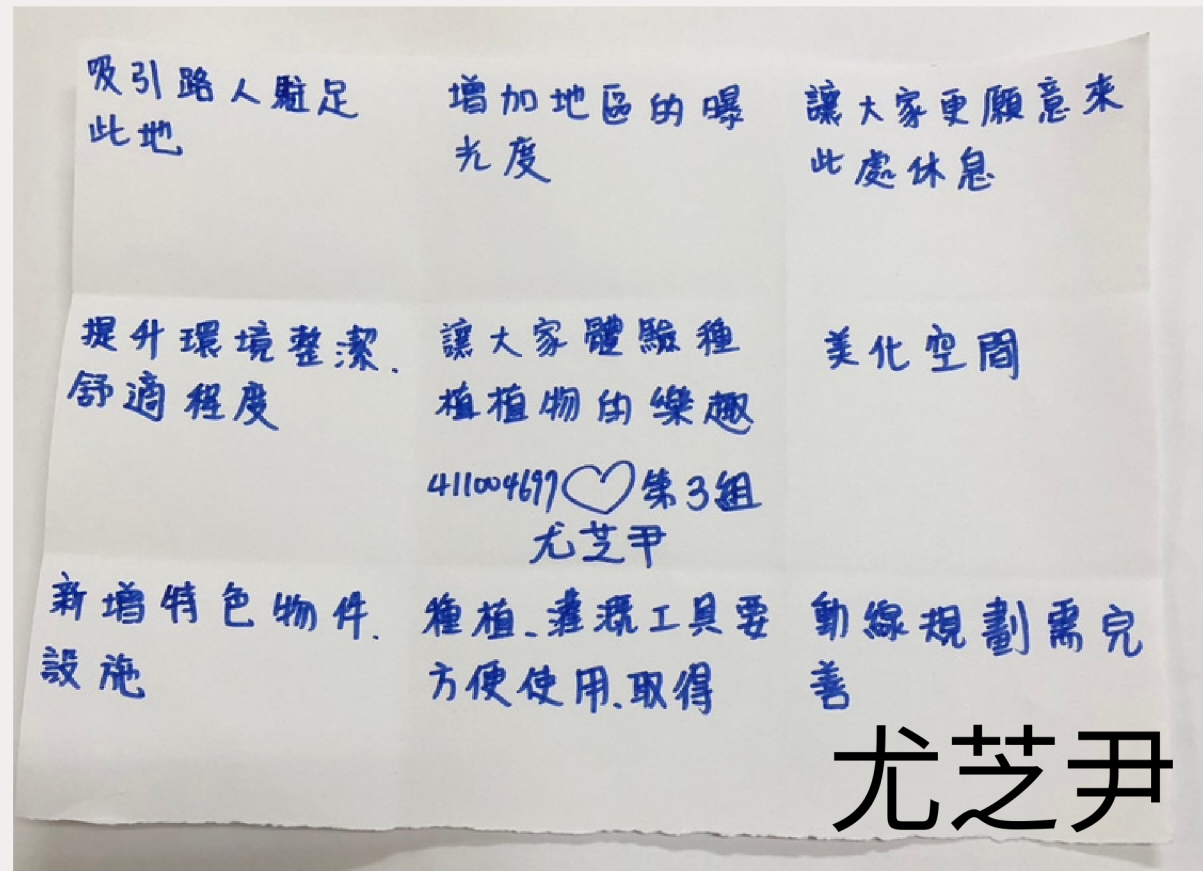 吸引路人駐足
此地
增加地區的曝
光度
讓大家更願意來
此處休息
提升環境整潔、
舒適程度
讓大家體驗種
植植物的樂趣
411004697♡第3組
尤芝尹
美化空間
新增特色物件、
設施
種植、灌溉工具要
方便使用、取得
動線規劃需完
善
尤芝尹